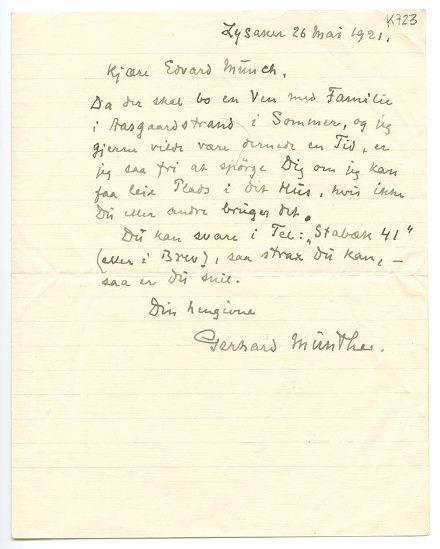 K723
Lysaker 26 Mai 1921.
Kjære Edvard Münch.
Da der skal bo en Ven med Familie
i Aasgaardstrand i Sommer, og jeg
gjerne vilde være dernede en Tid, er
jeg saa fri at spörge Dig om jeg kan
faa leie Plads i dit Hus, hvis ikke
Du eller andre bruger det.
Du kan svare i Tel: „Stabæk 41"
(eller i Brev), saa strax Du kan, –
saa er Du snil.
Din hengivne
Gerhard Münthe.